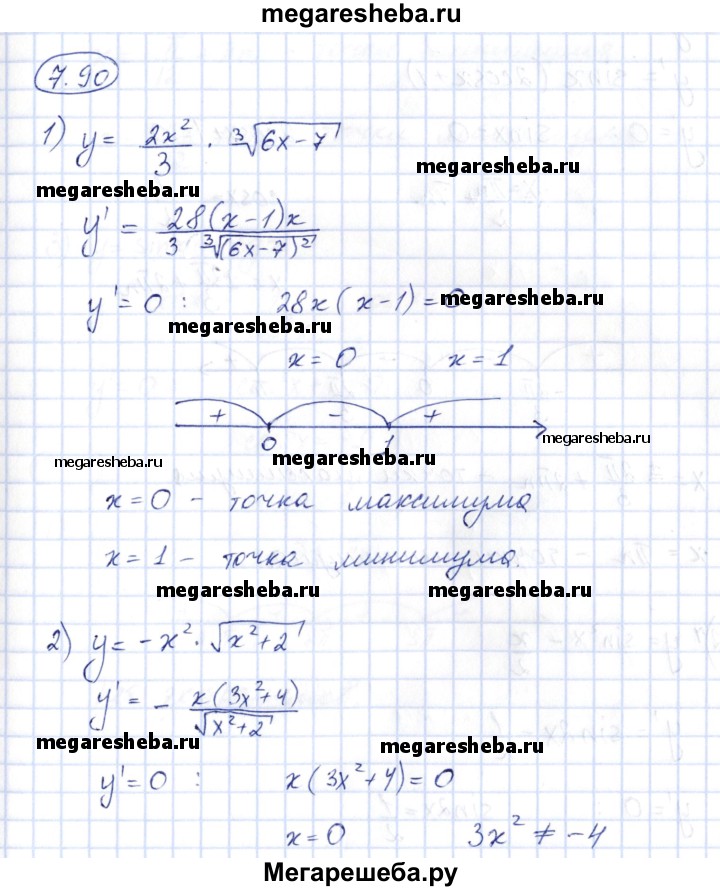 megaresheba.ru
7.90
1) y = 2x²/3 · ∛(6x-7)
megaresheba.ru
megaresheba.ru
y' = 28(x-1)x / 3 ∛(6x-7)²
y' = 0 : 28x(x-1) = 0
megaresheba.ru
megaresheba.ru
x = 0 x = 1
+ - +
0 1
megaresheba.ru
megaresheba.ru
megaresheba.ru
x = 0 - точка максимума
x = 1 - точка минимума.
megaresheba.ru
megaresheba.ru
2) y = -x² · √(x²+2)
y' = - x(3x²+4) / √(x²+2)
megaresheba.ru
megaresheba.ru
y' = 0 : x(3x²+4) = 0
x = 0 3x² ≠ -4
Мегарешеба.ру